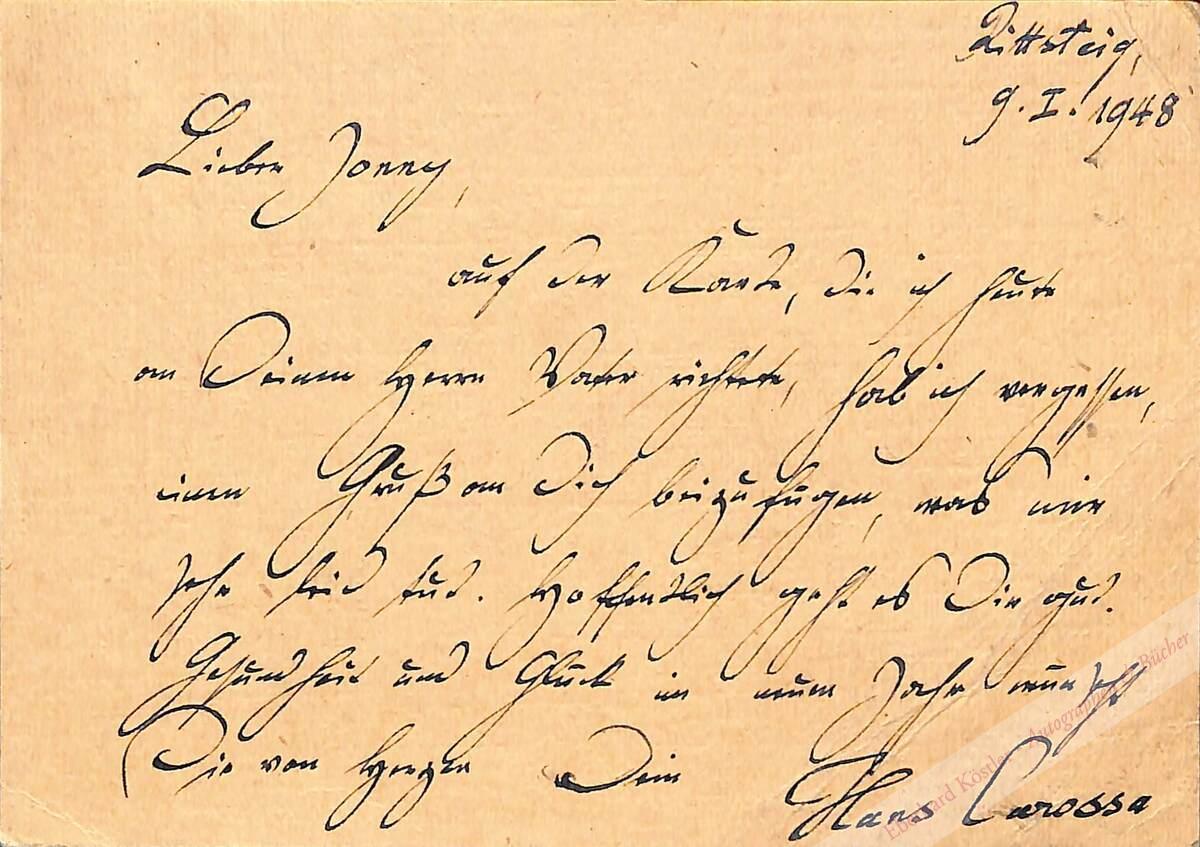 Rittsteig,
9. I. 1948
Lieber Jonny,
auf der Karte, die ich heute
an Deinen Herrn Vater richtete, hab ich vergessen,
einen Gruß an Dich beizufügen, was mir
sehr leid tut. Hoffentlich geht es Dir gut.
Gesundheit und Glück im neuen Jahr wünscht
Dir von Herzen Dein Hans Carossa
Eberhard Köstler Autographen Bücher